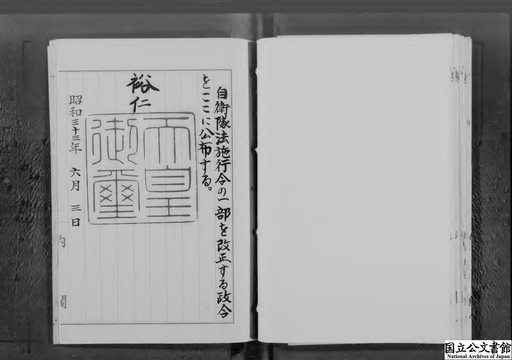 自衛隊法施行令の一部を改正する政令
をここに公布する。
裕仁
天皇
御璽
昭和三十三年 六月 三日
内閣
国立公文書館
National Archives of Japan